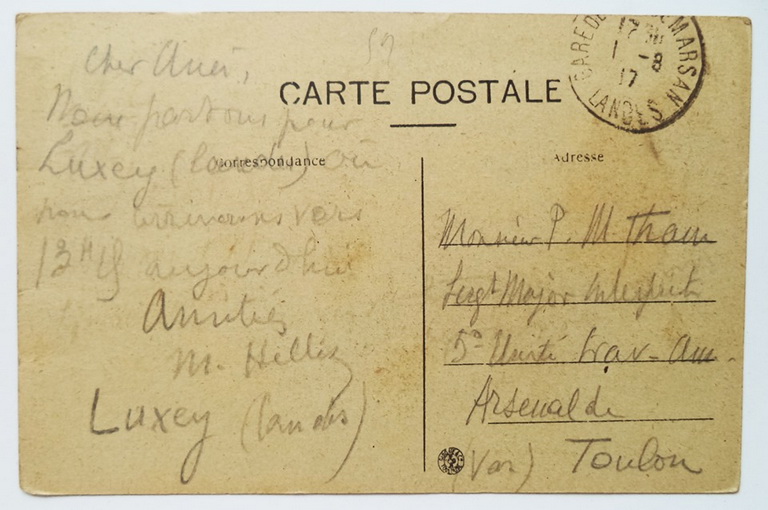 52
CARTE POSTALE
Correspondance
Adresse
GARE DE MARSAN
1 - 8
17
LANDES
Cher Ami,
Nous partons pour
Luxey (Landes) où
nous arriverons vers
13H15 aujourd'hui
Amitiés
M.
Luxey (Landes)
Monsieur P. M. Tham
Sergt Major Interprète
5e Unité Trav-Am.
Arsenal de
Toulon
(Var)